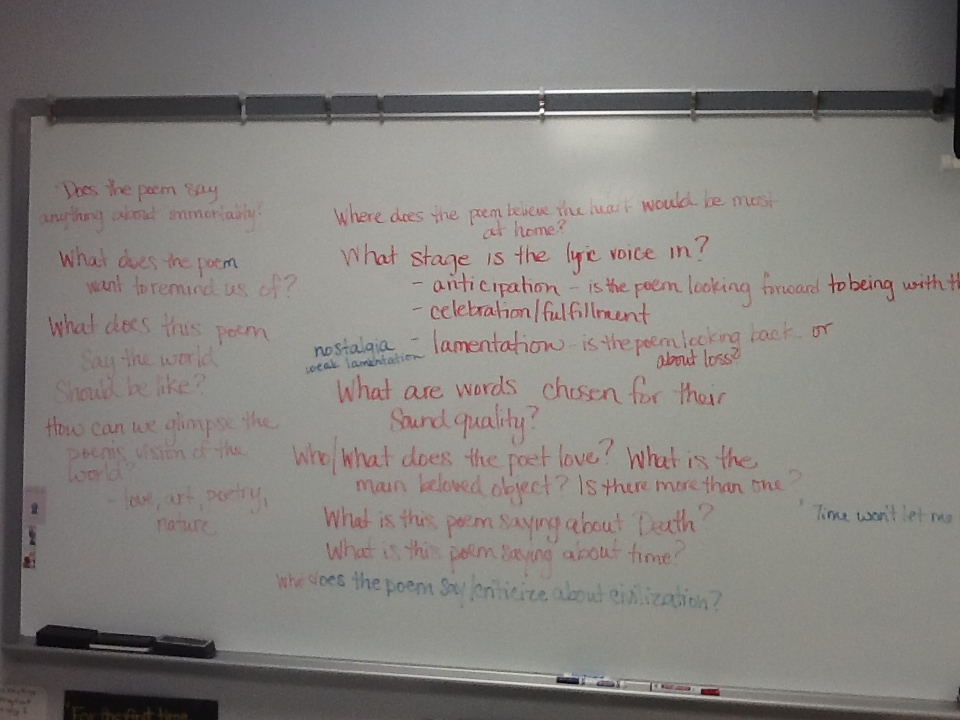 Does the poem say
anything about immortality?
What does the poem
want to remind us of?
What does this poem
Say the world
Should be like?
How can we glimpse the
poem's vision of the
world?
- love, art, poetry,
nature
Where does the poem believe the heart would be most
at home?
What stage is the lyric voice in?
- anticipation - is the poem looking forward to being with th
- celebration/fulfillment
nostalgia
weak lamentation
- lamentation - is the poem looking back or
about loss?
What are words chosen for their
Sound quality?
Who/What does the poet love? What is the
main beloved object? Is there more than one?
What is this poem saying about Death?
What is this poem saying about time?
does the poem say/criticize about civilization?
Time won't let me
For the first time